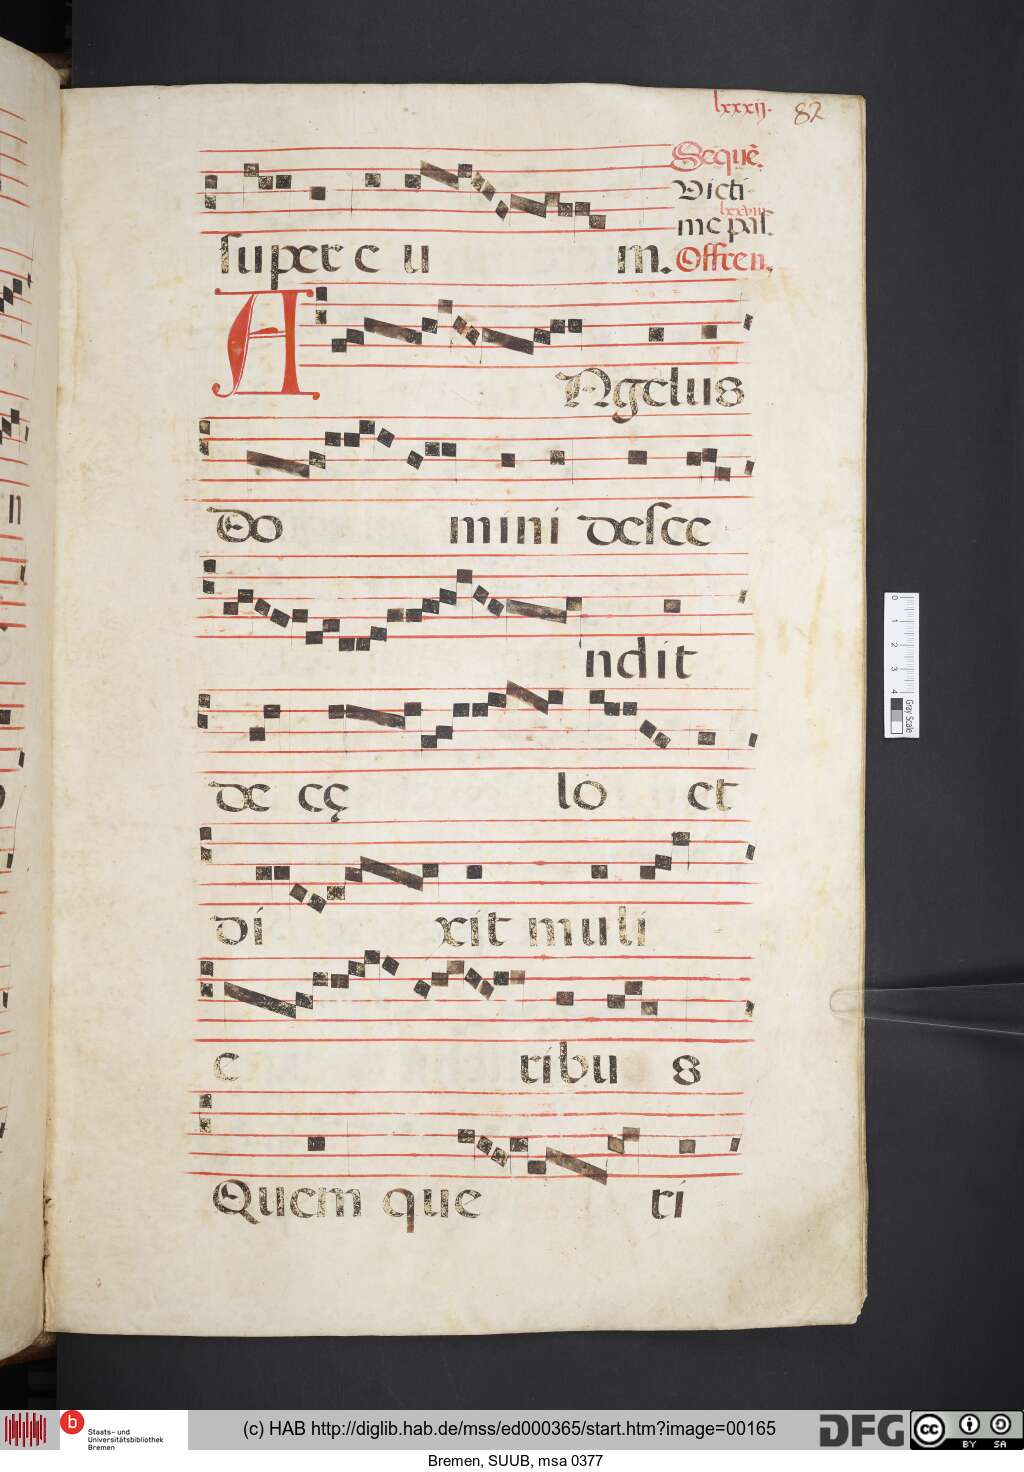 lxxxij. 82
Sequē.
Victi
lxxviii
me pas.
super e u m. Offren.
Angelus
Do mini desce
ndit
de cę lo et
di xit muli
e ribu s
Quem que ri
0 1 2 3 4 Gray Scale
b Staats- und
Universitätsbibliothek
Bremen
(c) HAB http://diglib.hab.de/mss/ed000365/start.htm?image=00165
DFG
cc BY SA
Bremen, SUUB, msa 0377